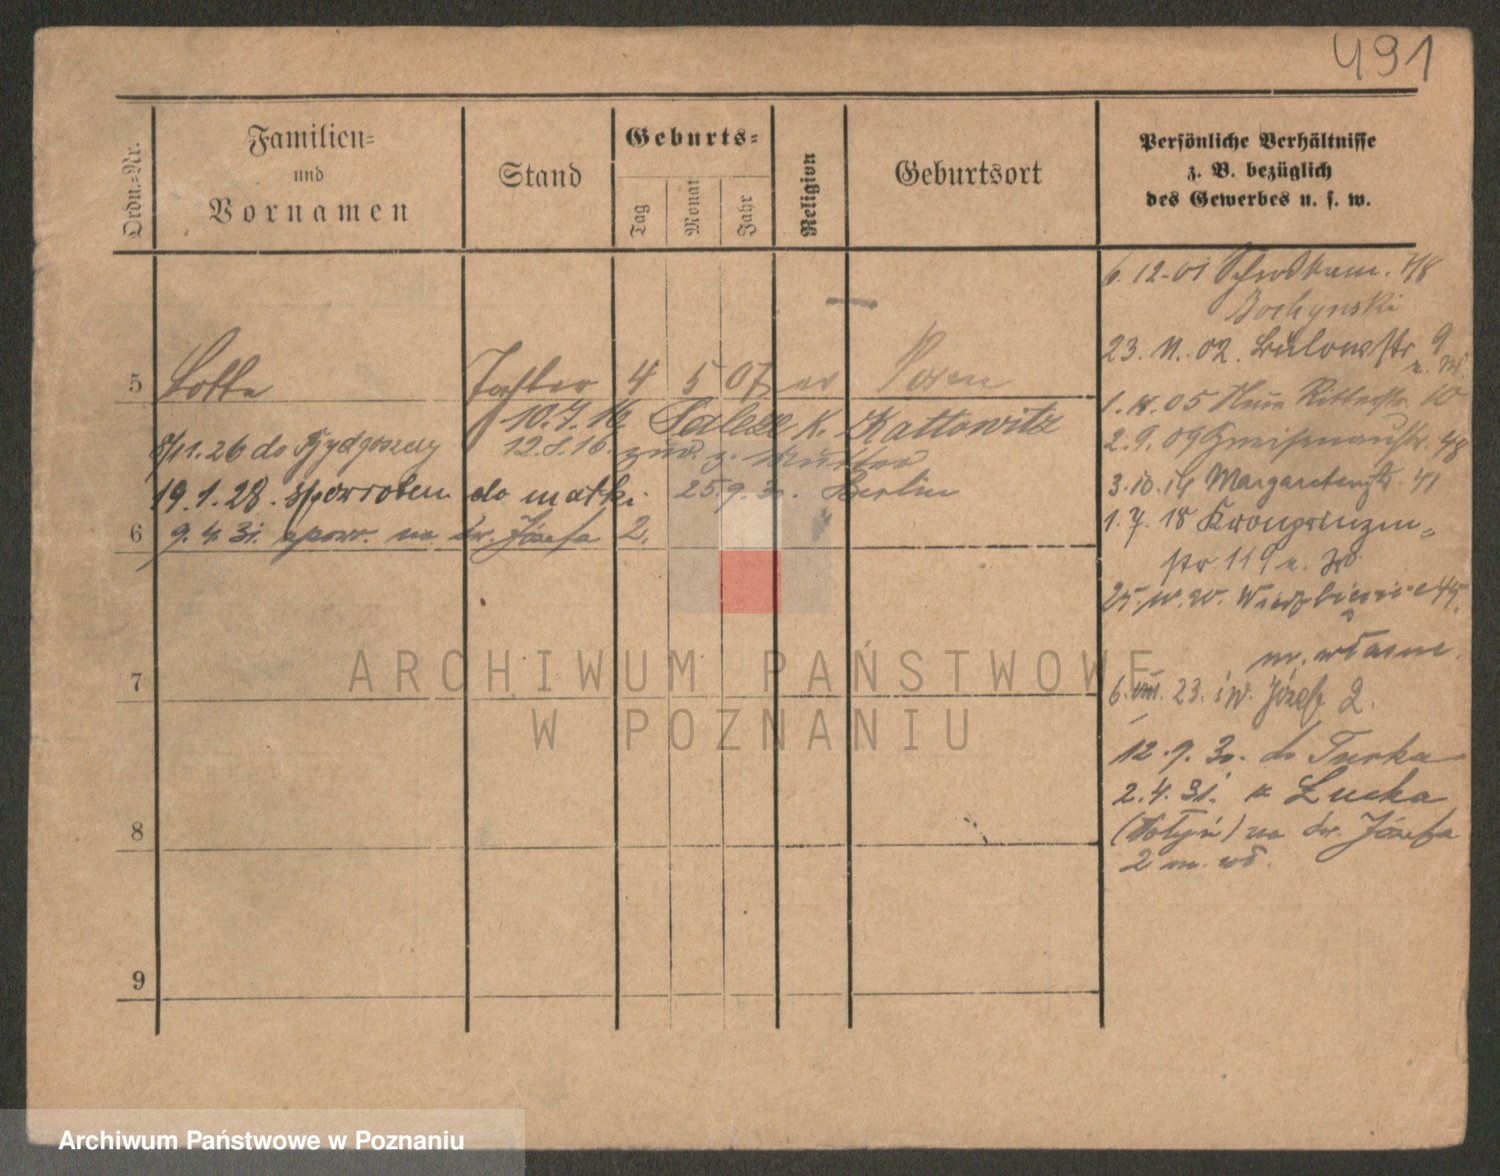 491
Ordn.-Nr.
Familien-
und
Vornamen
Stand
Geburts-
Tag
Monat
Jahr
Religion
Geburtsort
Persönliche Verhältnisse
z. B. bezüglich
des Gewerbes u. s. w.
6. 12-01
23. 11. 02. Bülowstr 9
5 Lotte Tochter 4 5 07 ev Posen
10.7.16 K. Kattowitz
1. 05 Neue Ritterstr. 10
8/11.26 do Bydgoszczy 12.8.16. zur. z. Mutter
2. 9. 09 Gneisenaustr. 48
19.1.28. do matki 25.9.30. Berlin
3.10.14 Margaretenstr. 41
6 9.4.31. spow. na św. Józefa 2.
1. 7. 18 Kronprinzen-
str. 119
25. Wierzbięcice 45
7
m. własne
6. VIII. 23. św. Józefa 2.
12. 9. 30. do Turka
2. 4. 31. z Łucka
8
(Wołyń) na św. Józefa
2 m. wł.
9
ARCHIWUM PAŃSTWOWE
W POZNANIU
Archiwum Państwowe w Poznaniu